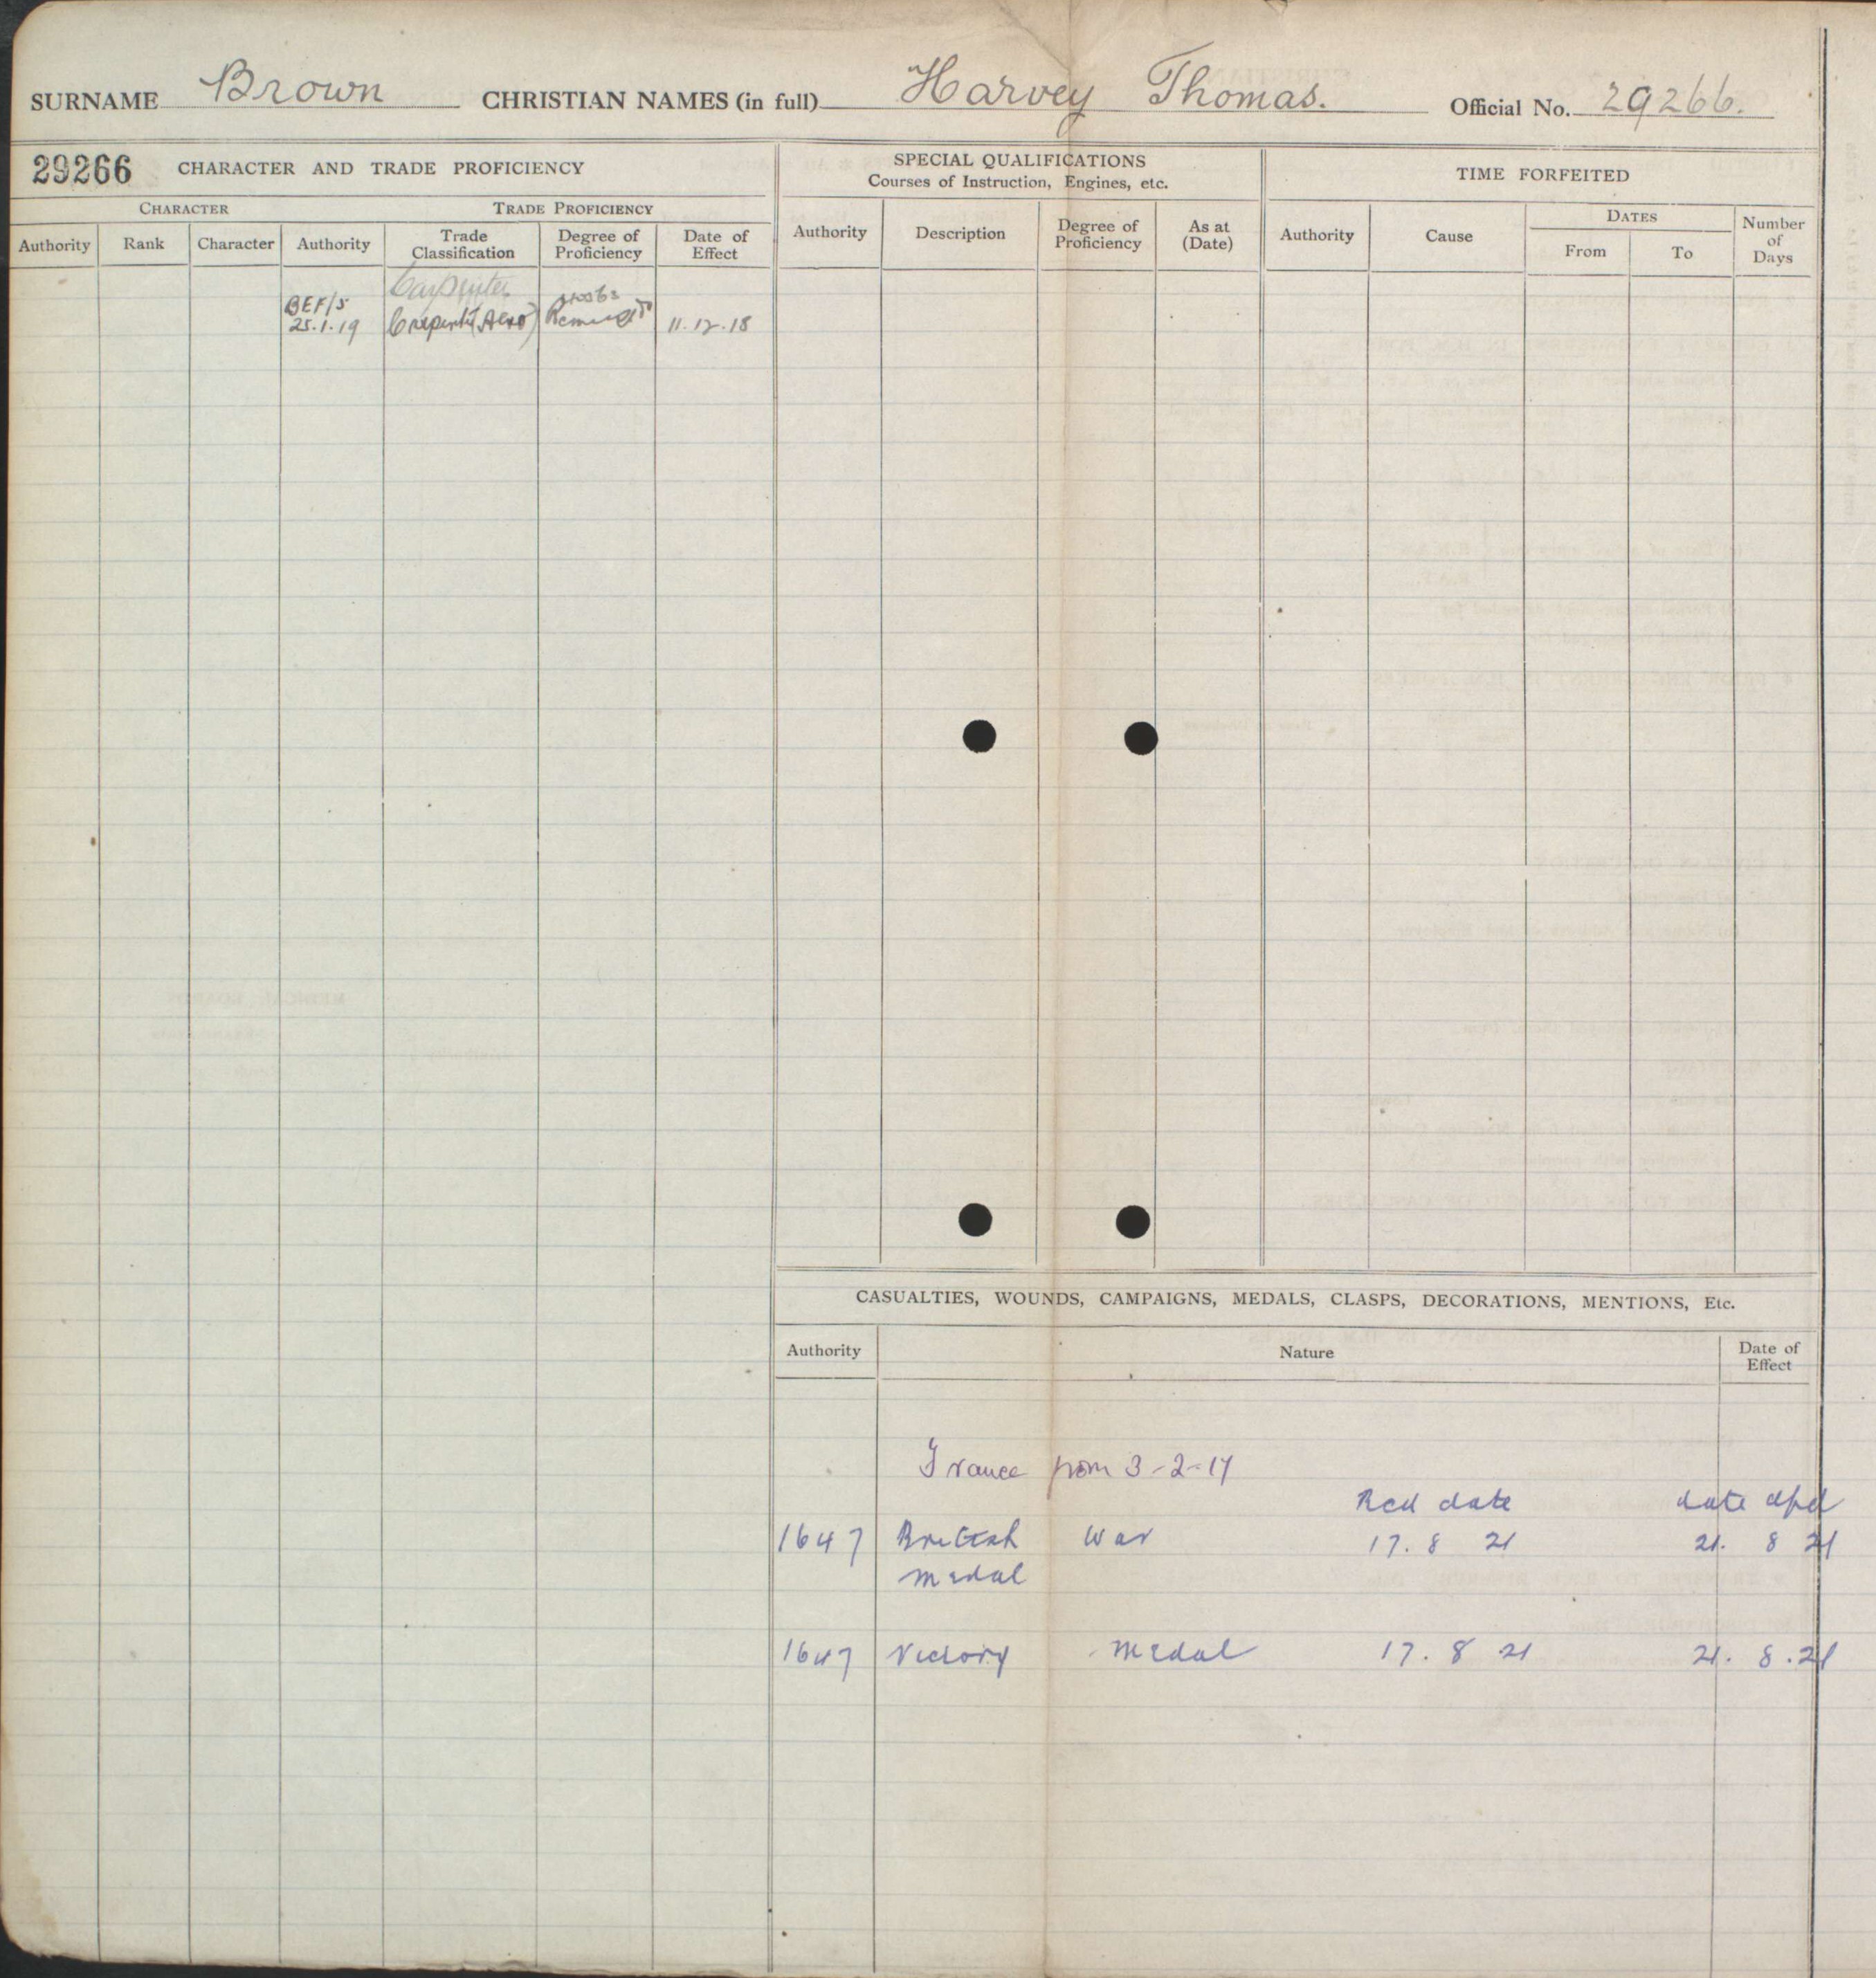 SURNAME Brown CHRISTIAN NAMES (in full) Harvey Thomas. Official No. 29266.
29266 CHARACTER AND TRADE PROFICIENCY
CHARACTER TRADE PROFICIENCY
Authority Rank Character Authority Trade Classification Degree of Proficiency Date of Effect
Carpenter
BEF/5
25.1.19 Carpentr (Aero) 11.12.18
SPECIAL QUALIFICATIONS
Courses of Instruction, Engines, etc.
Authority Description Degree of Proficiency As at (Date)
TIME FORFEITED
Authority Cause DATES From To Number of Days
CASUALTIES, WOUNDS, CAMPAIGNS, MEDALS, CLASPS, DECORATIONS, MENTIONS, Etc.
Authority Nature Date of Effect
France from 3-2-17
Recd date date dpd
1647 British War 17. 8 21 21. 8 21
medal
1647 Victory medal 17. 8 21 21. 8. 21